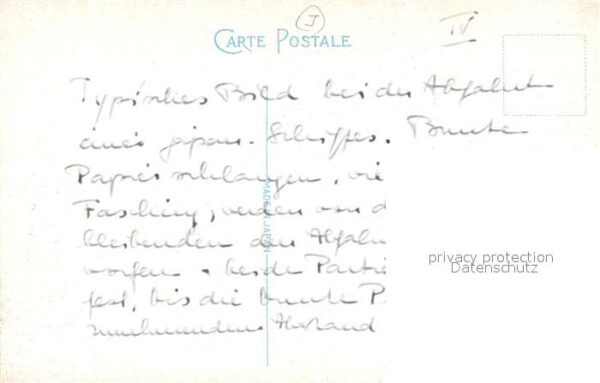 J
IV
CARTE POSTALE
Typisches Bild bei der Abfahrt
eines japan. Schiffes. Bunte
Papierschlangen, wie
Fasching, werden von d
bleibenden den Abfah
worfen . beide Partei
fest, bis die bunte P
zunehmendem Abstand
MADE IN JAPAN
privacy protection
Datenschutz